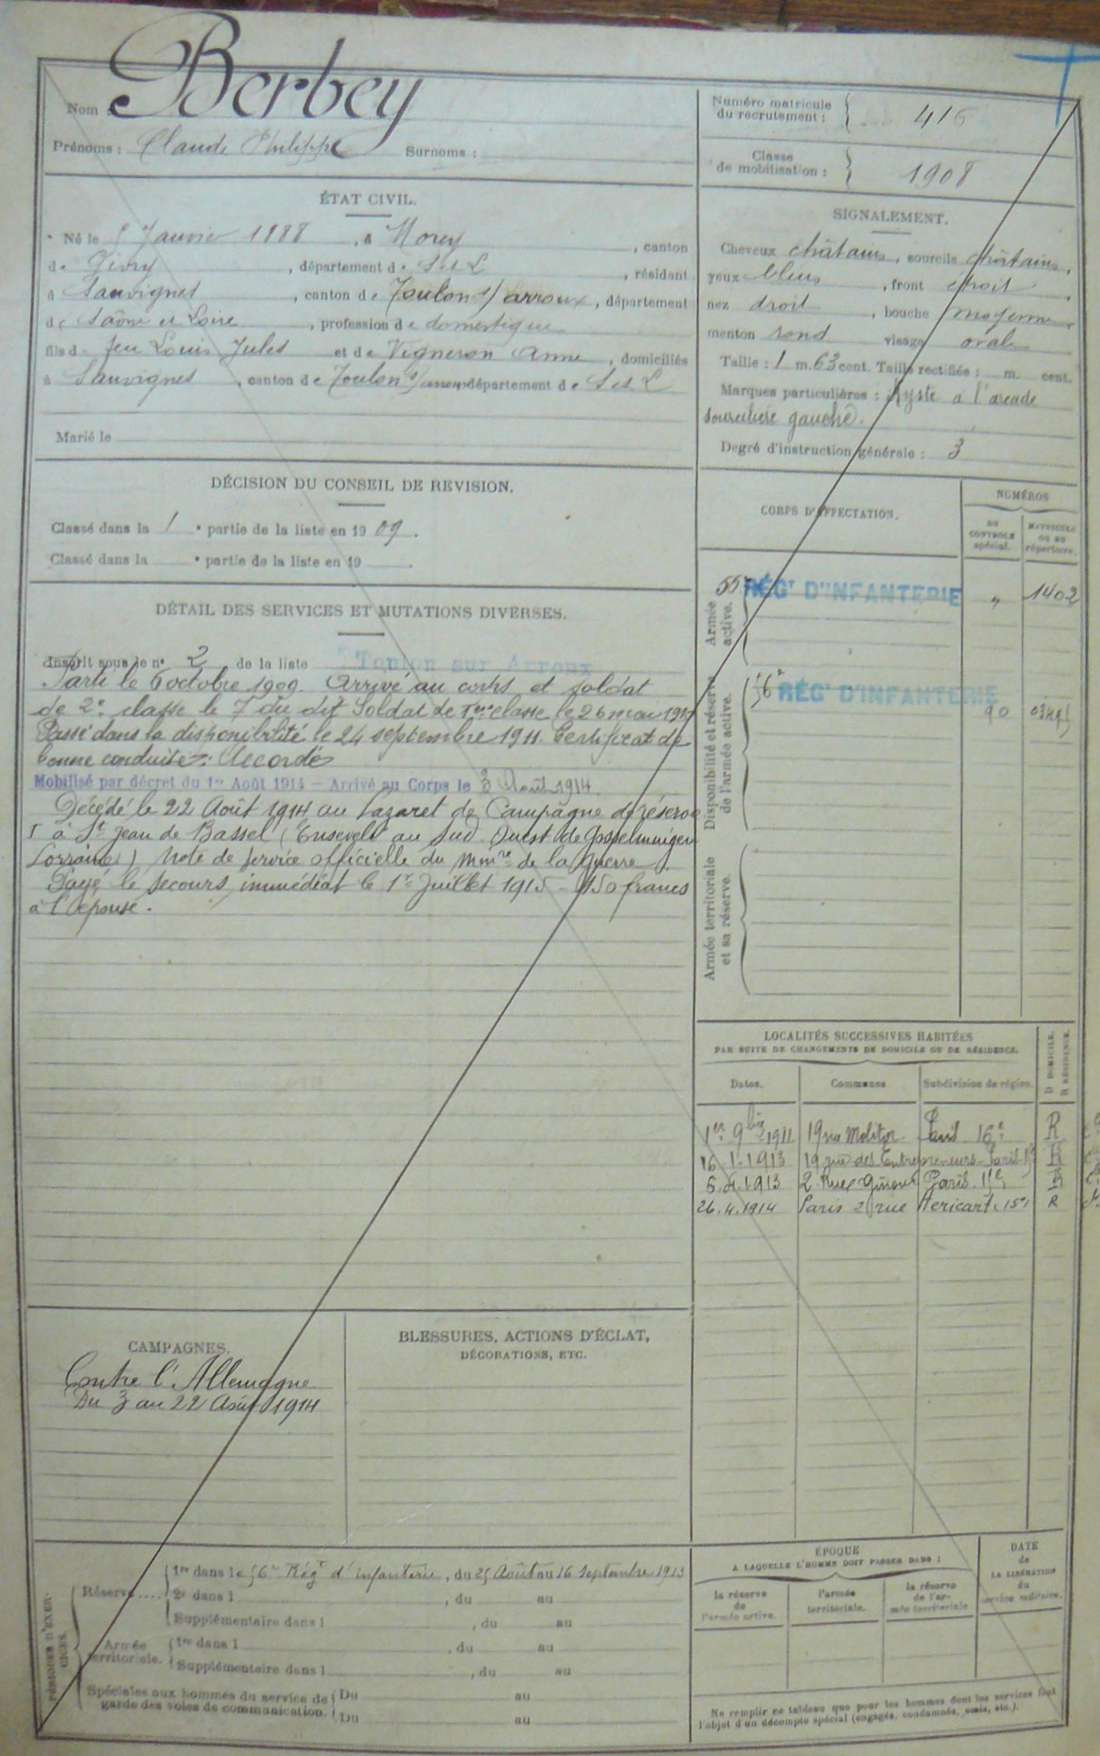 Nom : Berbey
Prénoms : Claude Philippe Surnoms :
Numéro matricule
du recrutement : 416
Classe
de mobilisation : 1908
ÉTAT CIVIL.
Né le Janvier 1888, à Morey, canton
de Givry, département de S et L, résidant
à Sanvignes, canton de Toulon s/ arroux, département
de Saône et Loire, profession de domestique
fils de feu Louis Jules et de Vigneron Anne, domiciliés
à Sanvignes, canton de Toulon s/ département de S et L
Marié le
SIGNALEMENT.
Cheveux châtains, sourcils châtains,
yeux bleus, front étroit,
nez droit, bouche moyenne,
menton rond visage ovale
Taille : 1 m. 63 cent. Taille rectifiée : m. cent.
Marques particulières : Kyste à l'arcade
sourcilière gauche.
Degré d'instruction générale : 3
DÉCISION DU CONSEIL DE REVISION.
Classé dans la 1e partie de la liste en 1909.
Classé dans la e partie de la liste en 19
DÉTAIL DES SERVICES ET MUTATIONS DIVERSES.
Inscrit sous le n° 2 de la liste Toulon sur Arroux
Parti le 6 octobre 1909. Arrivé au corps et soldat
de 2e classe le 7 du dit Soldat de 1ère classe le 26 mai
Passé dans la disponibilité le 24 septembre 1911. Certificat de
bonne conduite : Accordé
Mobilisé par décret du 1er Août 1914 — Arrivé au Corps le 3 Août 1914.
Décédé le 22 Août 1914 au Lazaret de Campagne de réserve
I à St Jean de Bassel (Enseveli au Sud Ouest de Gosselmingen
Lorraine) Note de service officielle du Mtre de la Guerre
Payé le secours immédiat le 1er Juillet 1915 - 150 francs
à l'épouse.
CORPS D'AFFECTATION.
NUMÉROS
AU
CONTROLE
spécial.
MATRICULE
OU AU
répertoire.
Armée
active.
RÉGt D'INFANTERIE " 1402
Disponibilité et réserve
de l'armée active.
56e RÉGt D'INFANTERIE 90
Armée territoriale
et sa réserve.
LOCALITÉS SUCCESSIVES HABITÉES
PAR SUITE DE CHANGEMENTS DE DOMICILE OU DE RÉSIDENCE.
Dates. Communes Subdivision de région. D DOMICILE. R RÉSIDENCE.
1er 9bre 1911 19 rue Molitor Paris 16e R
16.1.1913 19 rue des Entrepreneurs Paris R
1913 2 Rue Ginoux Paris 15e R
26.4.1914 Paris 2 rue Héricart 15e R
CAMPAGNES.
Contre l'Allemagne
Du 3 au 22 Août 1914
BLESSURES, ACTIONS D'ÉCLAT,
DÉCORATIONS, ETC.
PÉRIODES D'EXERCICES.
Réserve 1re dans le 56e Régt d'infanterie, du 25 Août au 16 Septembre 1913
2e dans l , du au
Supplémentaire dans l , du au
Armée
territoriale. 1re dans l , du au
Supplémentaire dans l , du au
Spéciales aux hommes du service de
garde des voies de communication. Du au
Du au
ÉPOQUE
A LAQUELLE L'HOMME DOIT PASSER DANS :
la réserve
de
l'armée active.
l'armée
territoriale.
la réserve
de l'ar-
mée territoriale
DATE
de
LA LIBÉRATION
du
service militaire.
Ne remplir ce tableau que pour les hommes dont les services font
l'objet d'un décompte spécial (engagés, condamnés, omis, etc.).